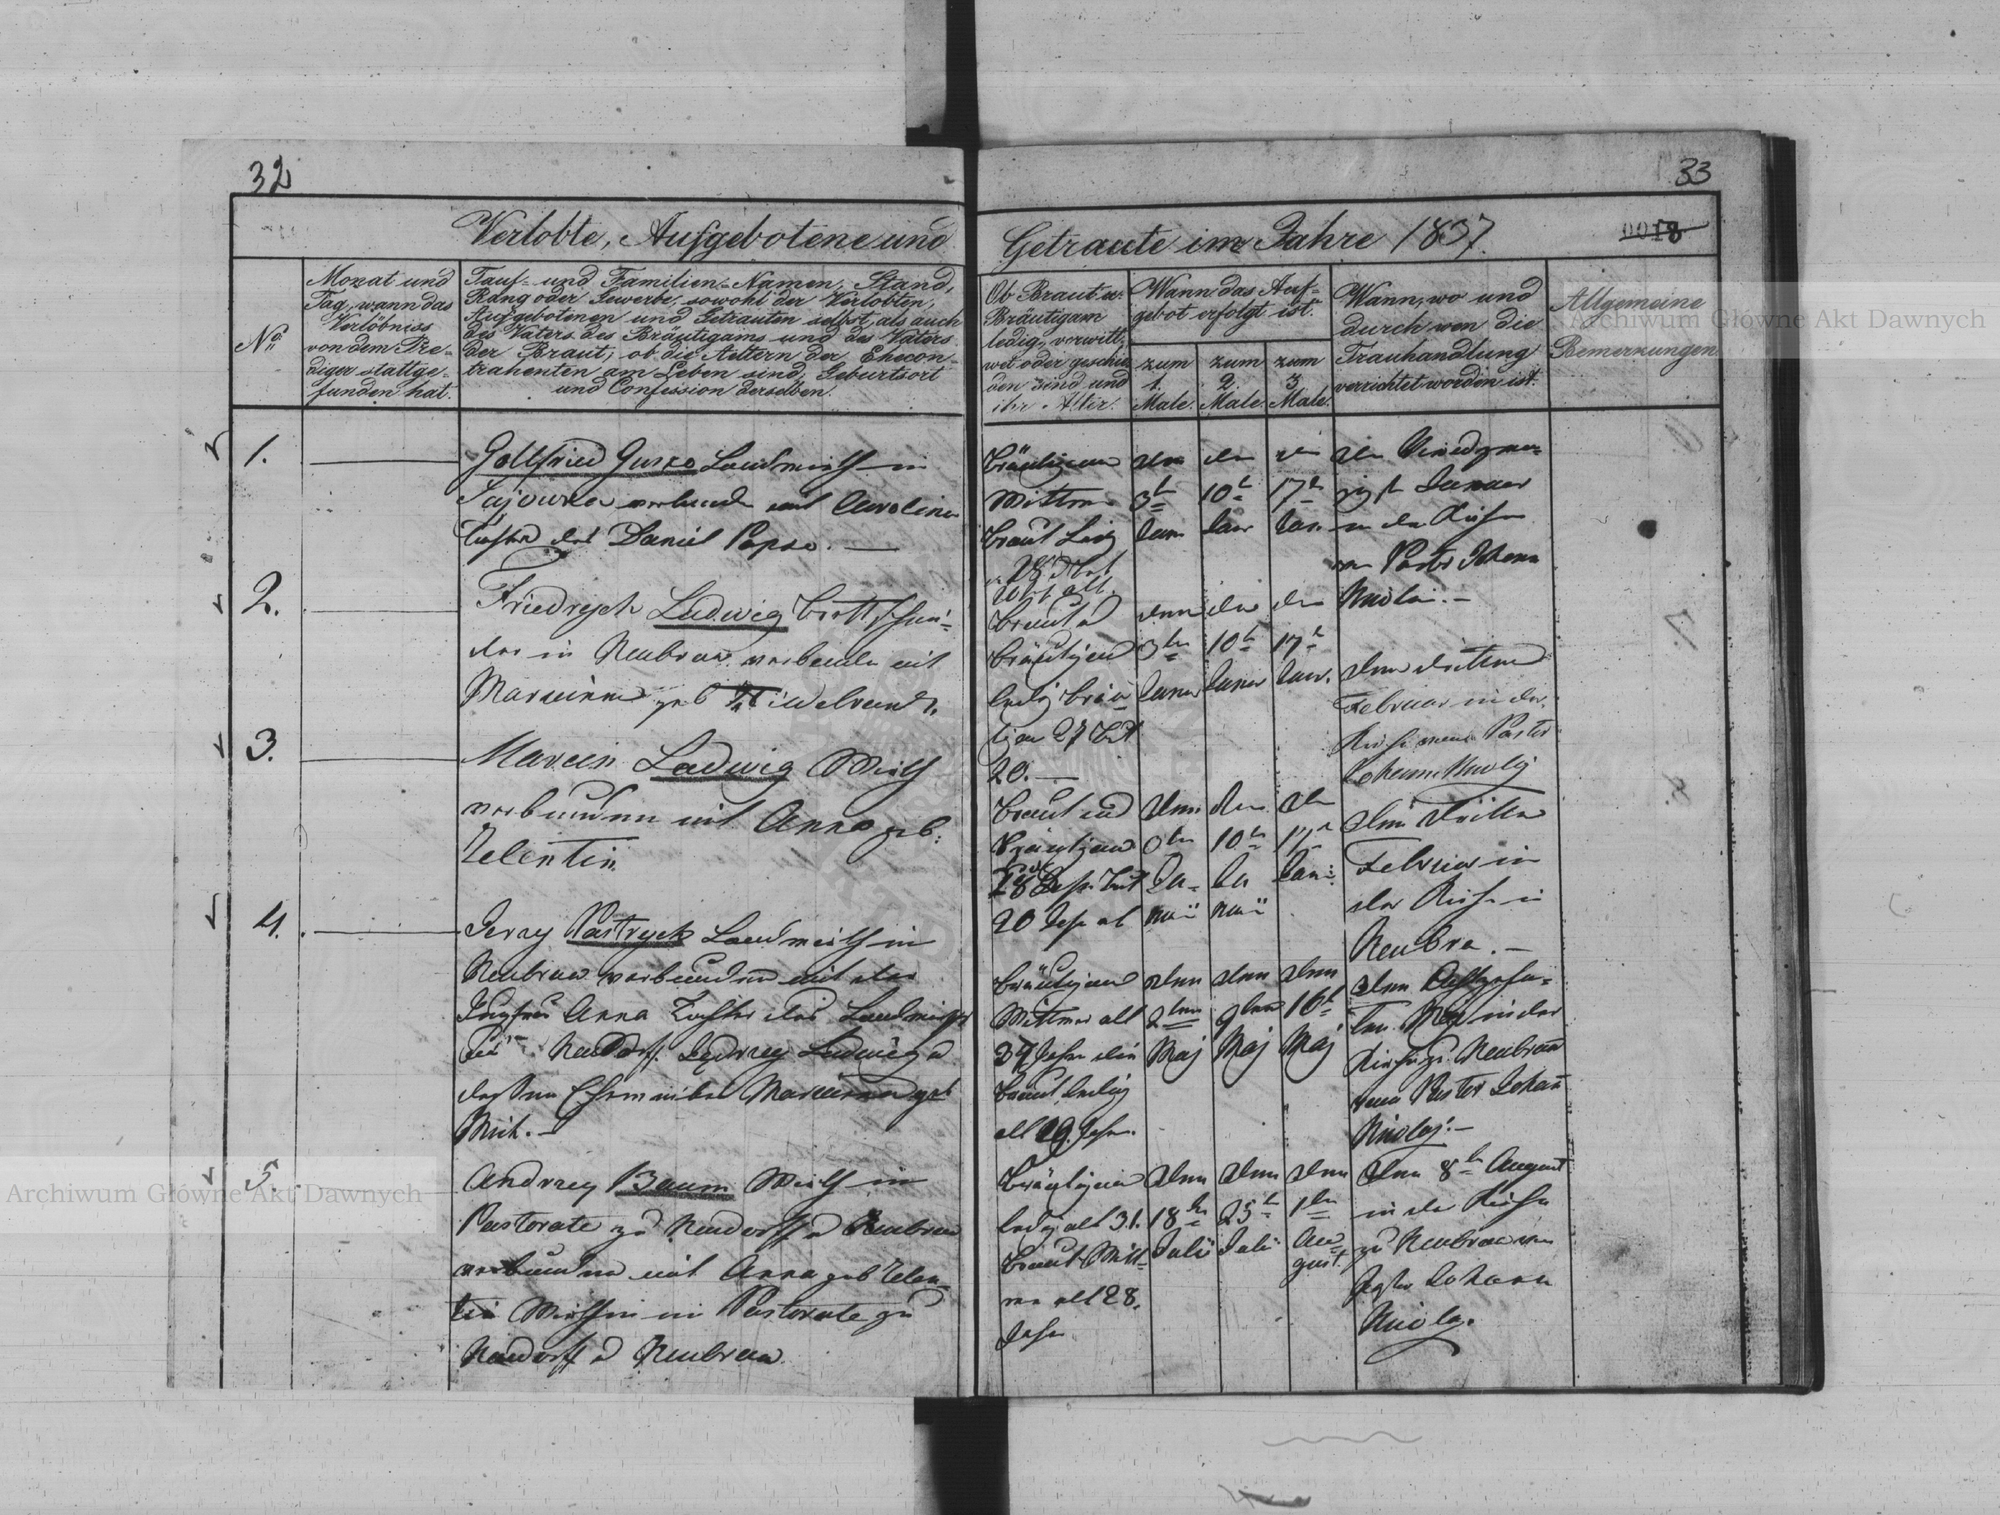 32
33
Verlobte, Aufgebotene und
Getraute im Jahre 1837.
0018
No
Monat und
Tag, wann das
Verlöbniss
von dem Pre-
diger stattge-
funden hat.
Tauf- und Familien-Namen, Stand,
Rang oder Gewerbe, sowohl der Verlobten,
Aufgebotenen und Getrauten selbst, als auch
des Vaters des Bräutigams und des Vaters
der Braut; ob die Aeltern der Ehecon-
trahenten am Leben sind, Geburtsort
und Confession derselben.
Ob Braut u.
Bräutigam
ledig, verwitt-
wet oder geschie-
den sind und
ihr Alter.
Wann das Auf-
gebot erfolgt ist.
zum
1.
Male.
zum
2.
Male.
zum
3.
Male.
Wann, wo und
durch wen die
Trauhandlung
verrichtet worden ist.
Allgemeine
Bemerkungen
Archiwum Główne Akt Dawnych
1.
Gottfried Landwirth in
verbunden mit Carolina
Tochter des Daniel
Bräutigam
Wittwer
Braut ledig
den
3t
Janr
den
10t
Janr
den
17t
Jan.
den
Januar
in der Kirche
von Pastor Johann
Nicolai.
2.
Friedrych Ludwig Brettschnei-
der in Neubrow verbunden mit
Marianna geb
Braut u
Bräutigam
ledig Bräu
tigam 27 Brt
20.
den
3ten
Janr
den
10t
Janr
den
17t
Janr.
den dritten
Februar in der
Kirche vom Pastor
Johann Nicolaj
3.
Marcin Ladwig Wirth
verbunden mit Anna geb:
Zelentin.
Braut und
Bräutigam
28 Jahr Brt
20 Jahr alt
den
10t
17t
den dritten
Februar in
der Kirche in
Neubro.
4.
Jerzy Pastryck Landwirth in
Neubrow verbunden mit der
Jungfrau Anna Tochter des Landwirths
Neudorf Ludwig u
dessen Eheweibes Marianna geb
Bräutigam
Wittwer alt
39 Jahr die
Braut ledig
alt 19 Jahr.
den
2ten
Maj
den
9ten
Maj
den
16t
Maj
den Achtzehn-
ten Maj in der
Kirche zu Neubrow
vom Pastor Johann
Nicolaj.
5.
Andrzey Baum Wirth in
Pastorate zu Neudorff u Neubrow
verbunden mit Anna geb Zelen-
tin Wirthin in Pastorate zu
Neudorff u Neubrow.
Bräutigam
ledig alt 31.
Braut Witt-
we alt 28.
Jahr
den
18ten
Juli
den
25t
Juli
den
1ten
Au-
gust.
den 8t August
in der Kirche
zu Neubrow von
Pastor Johann
Nicolaj.
Archiwum Główne Akt Dawnych